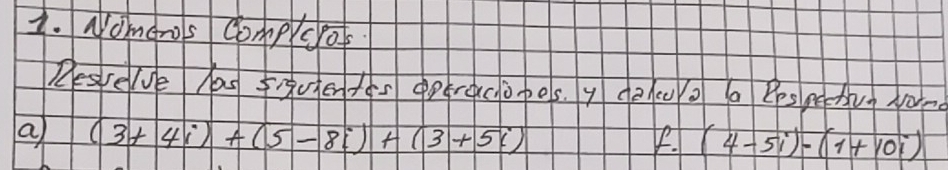 1. Números Complejos.
Resuelve las siguientes operaciones. y calcula la Respectiva norma
a) (3+4i)+(5-8i)+(3+5i) f. (4-5i)-(1+10i)